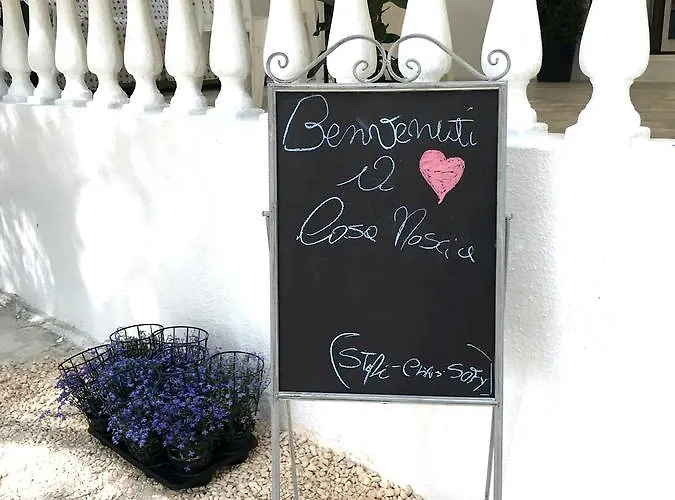 Benvenuti
a
Casa Noscia
(Stefi-Chris-Sofy)